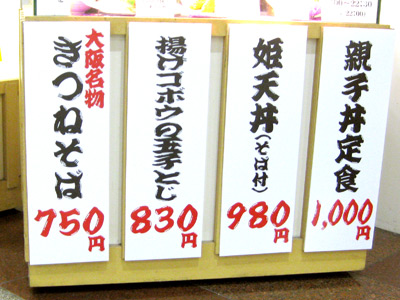 ~22:30
22:00)
親子丼定食
1,000円
姫天丼(そば付)
980円
揚げゴボウの玉子とじ
830円
大阪名物
きつねそば
750円